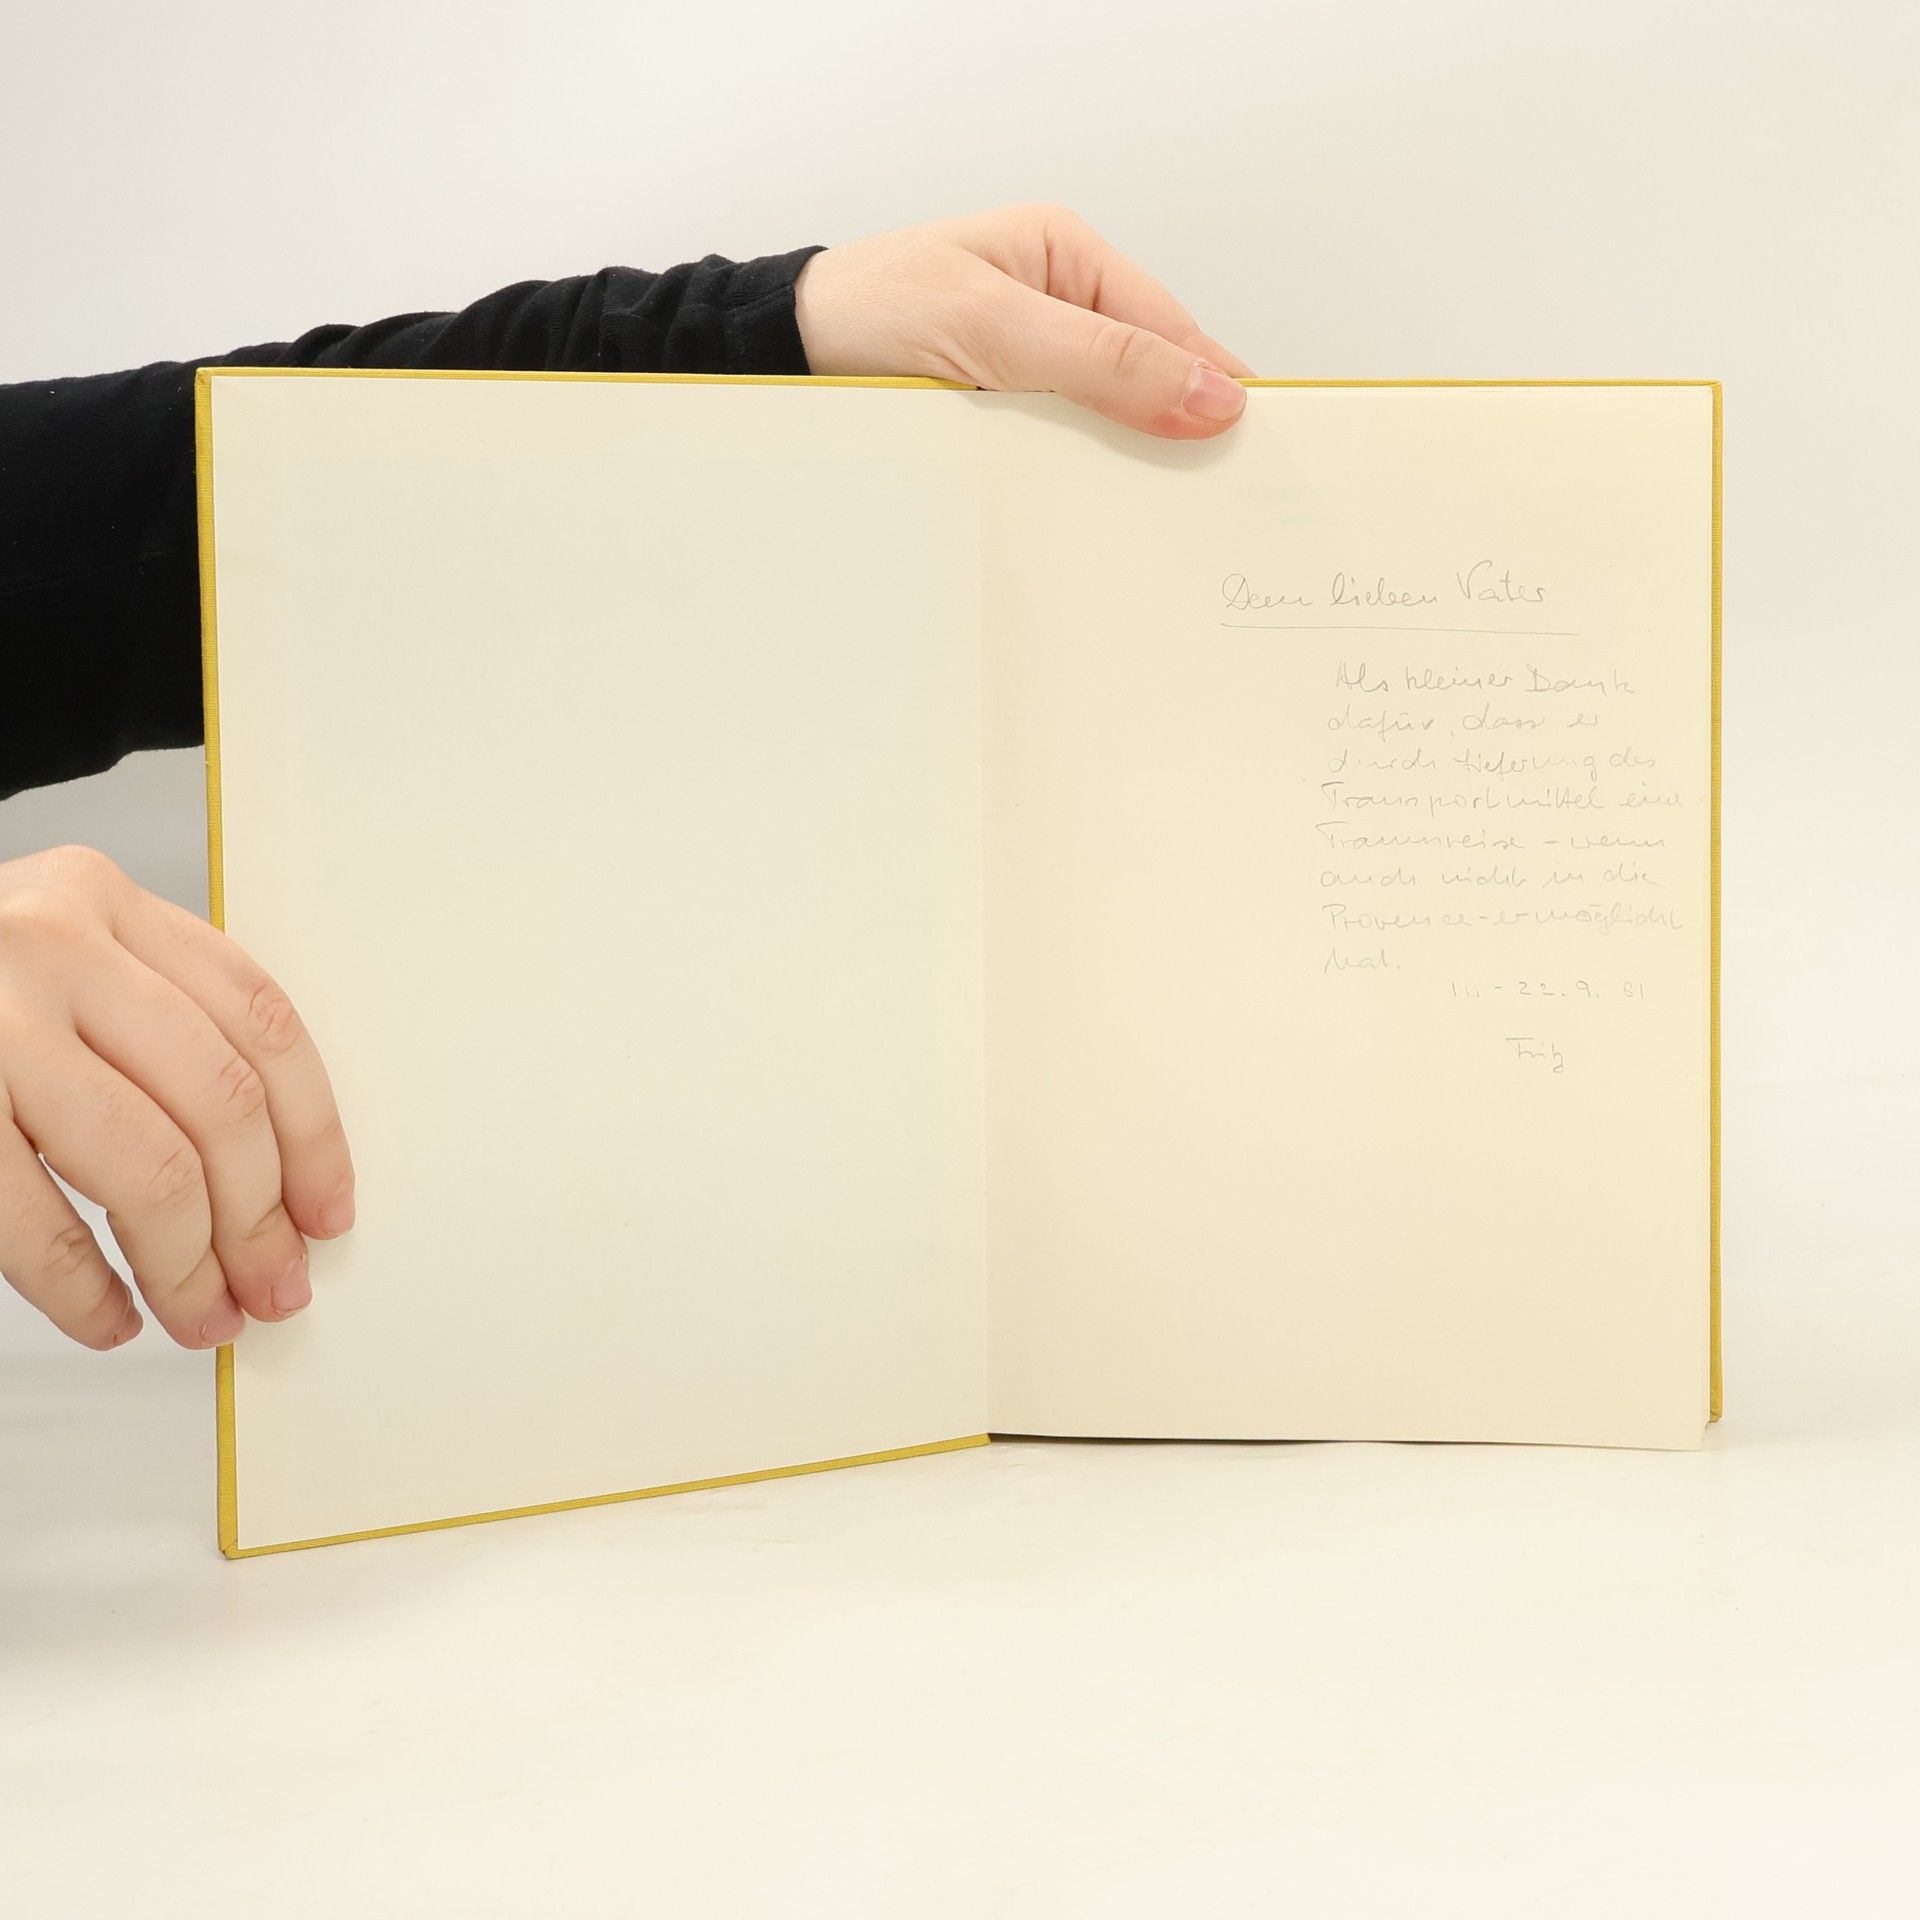 Dem lieben Vater
Als kleiner Dank
dafür, dass er
durch Lieferung des
Transportmittel eine
Traumreise - wenn
auch nicht in die
Provence - ermöglicht
hat.
11. - 22. 9. 61
Fritz